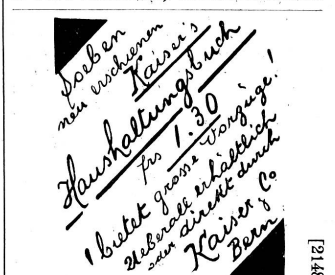 Soeben
neu erschienen
Kaiser's
Haushaltungsbuch
frs 1.30
! bietet grosse Vorzüge!
Ueberall erhältlich
oder direkt durch
Kaiser Co
Bern
[2148